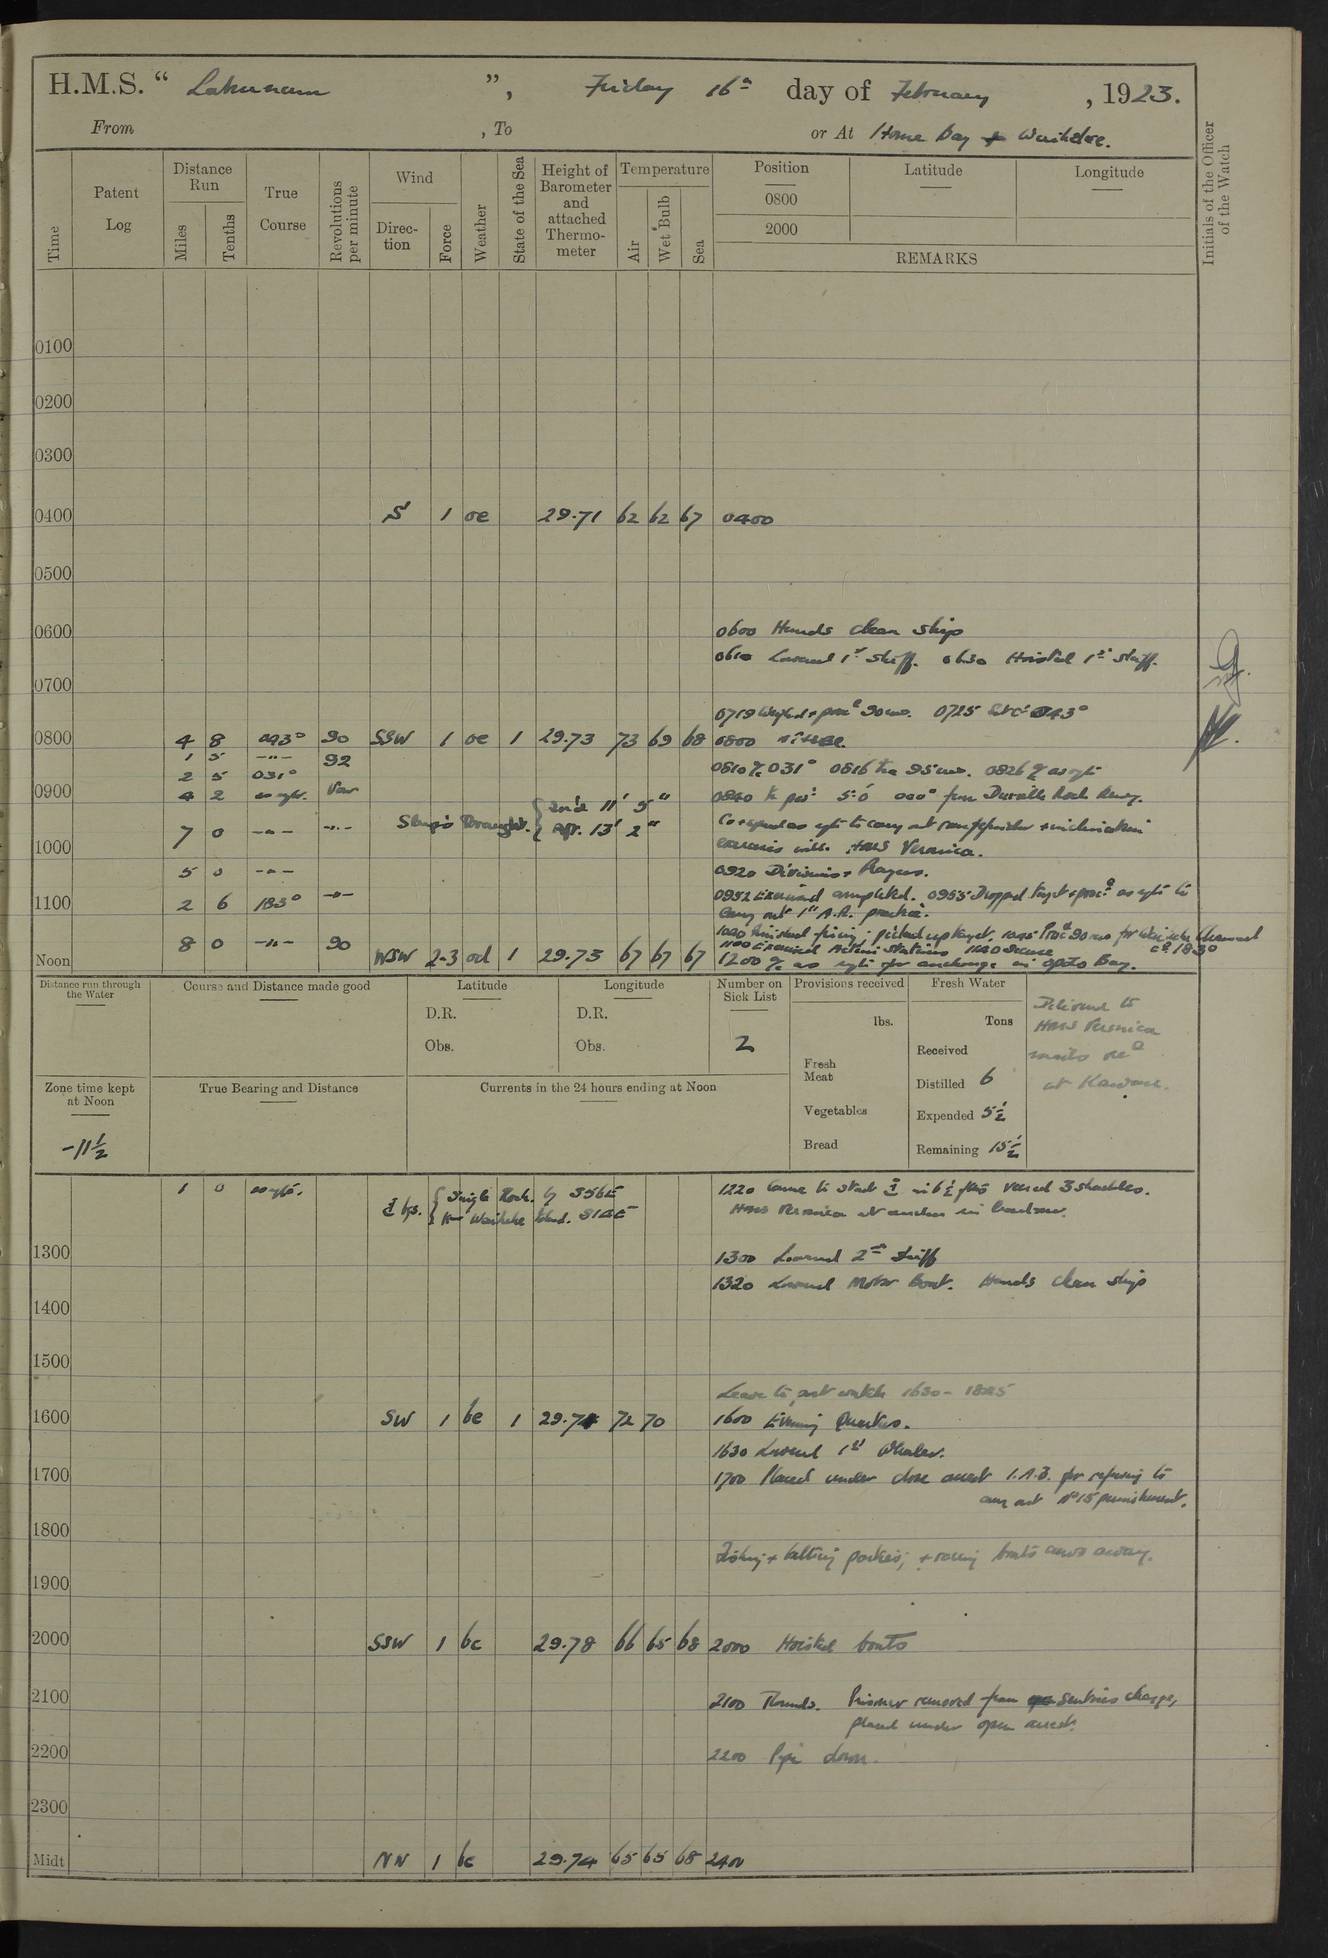 H.M.S. “ Laburnum ”, Friday 16th day of February , 1923.
From , To or At Home Bay + Waiheke.
Time
Patent Log
Distance Run
Miles
Tenths
True Course
Revolutions per minute
Wind
Direction
Force
Weather
State of the Sea
Height of Barometer and attached Thermometer
Temperature
Air
Wet Bulb
Sea
Position
0800
2000
Latitude
Longitude
REMARKS
Initials of the Officer of the Watch
0100
0200
0300
0400 S 1 oe 29.71 62 62 67 0400
0500
0600 0600 Hands clean ship
0610 Lowered 1st skiff. 0630 Hoisted 1st skiff.
0700
0719 Weighed + proc. 90 revs. 0725 043°
0800 4 8 043° 90 SSW 1 oe 1 29.73 73 69 68 0800
1 5 -"- 92 0810 031° 0816 95 revs. 0826
2 5 031°
0900 4 2 as reqte. Var 0840 000° from Rock
Ship's Draught. 11' 5" Aft. 13' 2"
7 0 -"- -"- to carry out rangefinder + inclination
1000 exercises with HMS Veronica.
5 0 -"- 0920 Divisions + Prayers.
1100 2 6 183° -"- 0952 Exercise completed. 0955 Dropped target + proc. as reqte to
carry out 1" A.R. practice.
8 0 -"- 90 finished firing, picked up target. 90 revs for
1100 Exercised Action Stations
Noon WSW 2-3 od 1 29.73 67 67 67 1200 as reqte for anchorage in Bay.
Distance run through the Water
Course and Distance made good
Latitude
D.R.
Obs.
Longitude
D.R.
Obs.
Number on Sick List
2
Provisions received
lbs.
Fresh Meat
Vegetables
Bread
Fresh Water
Tons
Received
Distilled 6
Expended 5½
Remaining 15½
Delivered to
HMS Veronica
at Kawau.
Zone time kept at Noon
-11½
True Bearing and Distance
Currents in the 24 hours ending at Noon
1 0 as reqte. Rock. S56E
Waiheke Island. S14E
1220 Came to in 6½ fms veered 3 shackles.
HMS Veronica at anchor in
1300 1300 Lowered 2nd skiff
1320 Lowered Motor Boat. Hands clean ship
1400
1500
Leave to part watch 1630 - 1845
1600 SW 1 bc 1 29.74 72 70 1600 Evening Quarters.
1630 Lowered 1st Whaler.
1700 1700 Placed under close arrest 1.A.B. for refusing to
carry out No 15 punishment.
1800
Fishing + bathing parties, + racing boats crews away.
1900
2000 SSW 1 bc 29.78 66 65 68 2000 Hoisted boats
2100 2100 Rounds. Prisoner removed from sentries charge,
placed under open arrest.
2200 2200 Pipe down.
2300
Midt NW 1 bc 29.74 65 65 68 2400